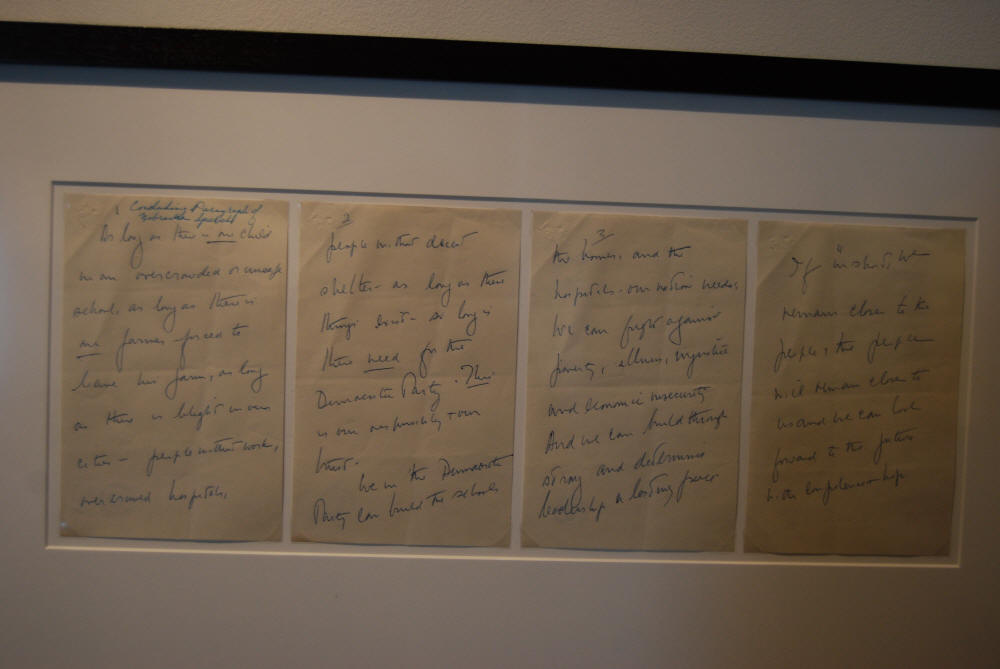 1 Concluding Paragraph of
Nebraska Speech
As long as there is one child
in an overcrowded or unsafe
school, as long as there is
one farmer forced to
leave his farm, as long
as there is blight in our
cities - people without work,
overcrowded hospitals,
2
people without decent
shelter - as long as these
things exist - so long is
there need for the
Democratic Party. This
is our responsibility & our
trust.
We in the Democratic
Party can build the schools
3
the homes, and the
hospitals our nation needs,
We can fight against
poverty, illness, injustice
and economic insecurity
And we can build through
strong and determined
leadership a lasting peace
If in short, we
remain close to the
people, the people
will remain close to
us and we can look
forward to the future
with confidence & hope